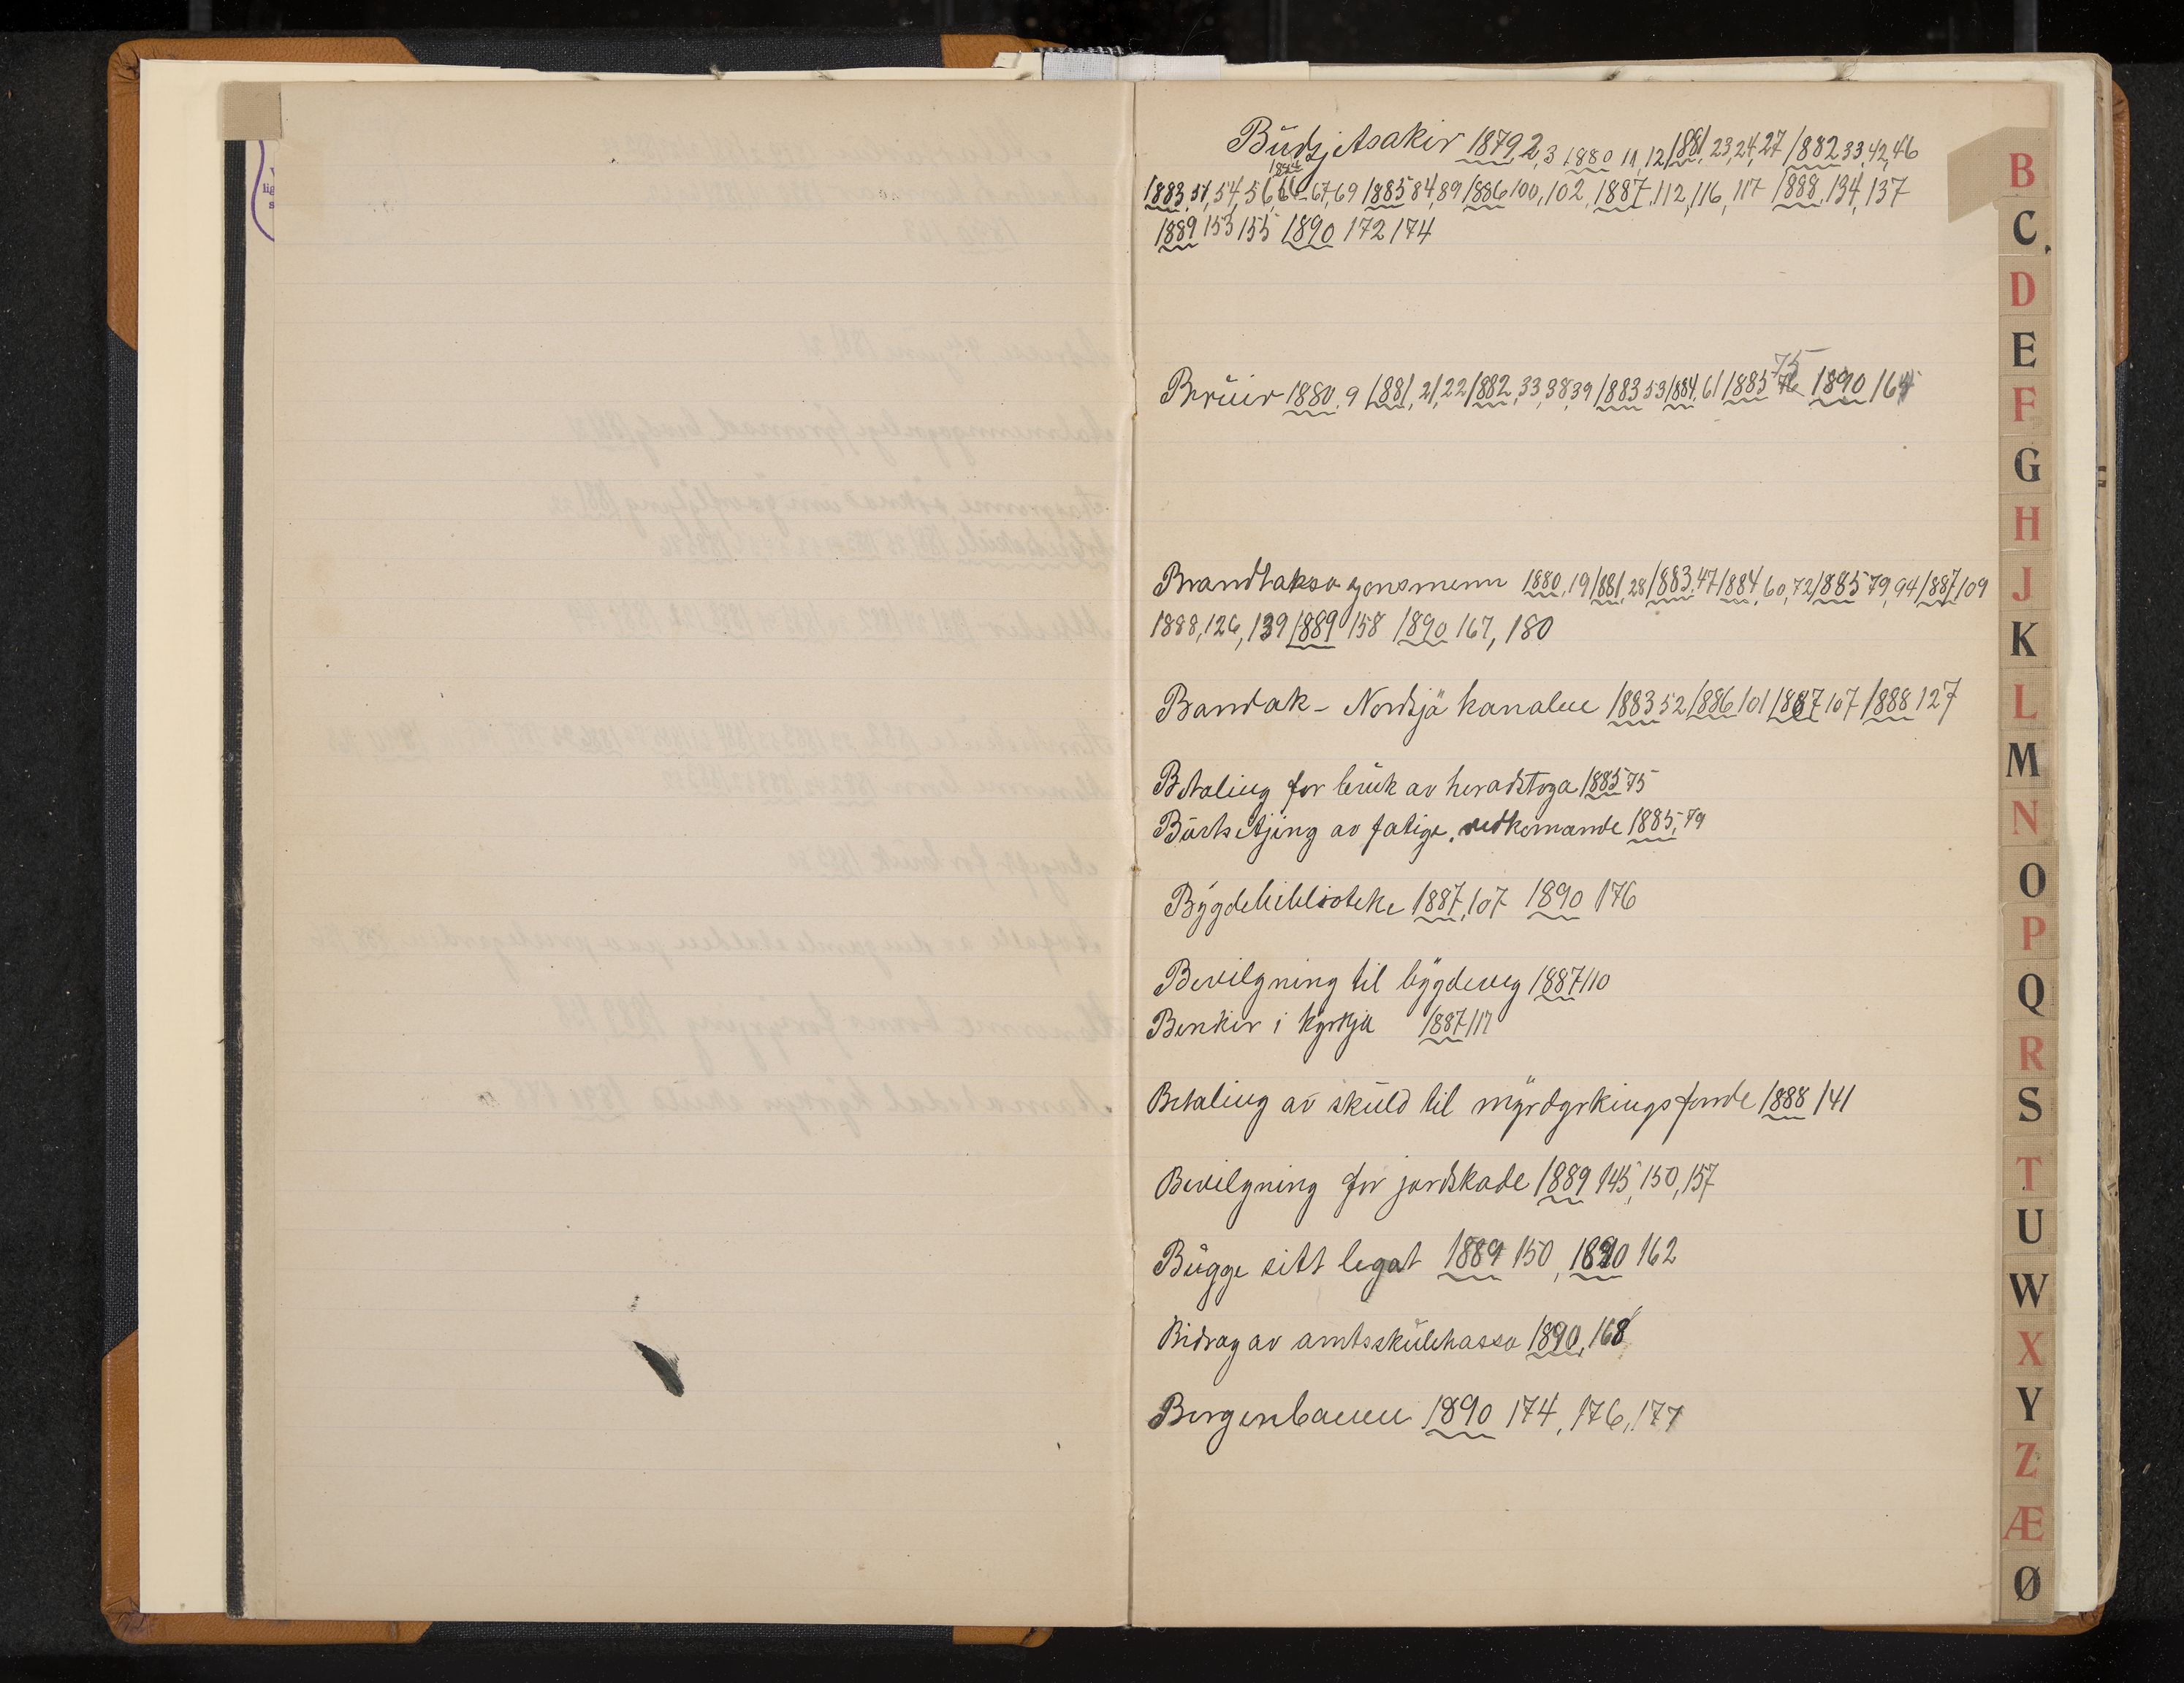 Budsjetsakir 1879,2,3 1880 11,12/1881,23,24,27/1882 33,42,46
1884
1883,51,54,56,66-67,69 1885 84,89/1886 100,102,1887,112,116,117 1888,134,137
1889 153 155 1890 172 174
75
Bruir 1880,9/1881,21,22/1882,33,38 39/1883 53/1884,61/1885 76 1890 164
Brandtakso zonsmenn 1880,19/1881,28/1883,47/1884,60,72/1885 79,94/1887,109
1888,126,139/1889 158 1890 167,180
Bandak - Nordsjø kanalen 1883 52/1886 101/1887 107/1888 127
Betaling for bruk av heradstoga 1885 75
Burtsetjing av fatige, vedkomande 1885,79
Bygdebiblioteke 1887,107 1890 176
Bevilgning til bygdeveg 1887 110
Benkir i kyrkja 1887 117
Betaling av skuld til myrdyrkingsfonde 1888 141
Bevilgning for jordskade 1889 145,150,157
Bugge sitt legat 1889 150, 1890 162
Bidrag av amtsskulekassa 1890,168
Bergenbanen 1890 174,176,177
B
C
D
E
F
G
H
J
K
L
M
N
O
P
Q
R
S
T
U
W
X
Y
Z
Æ
Ø